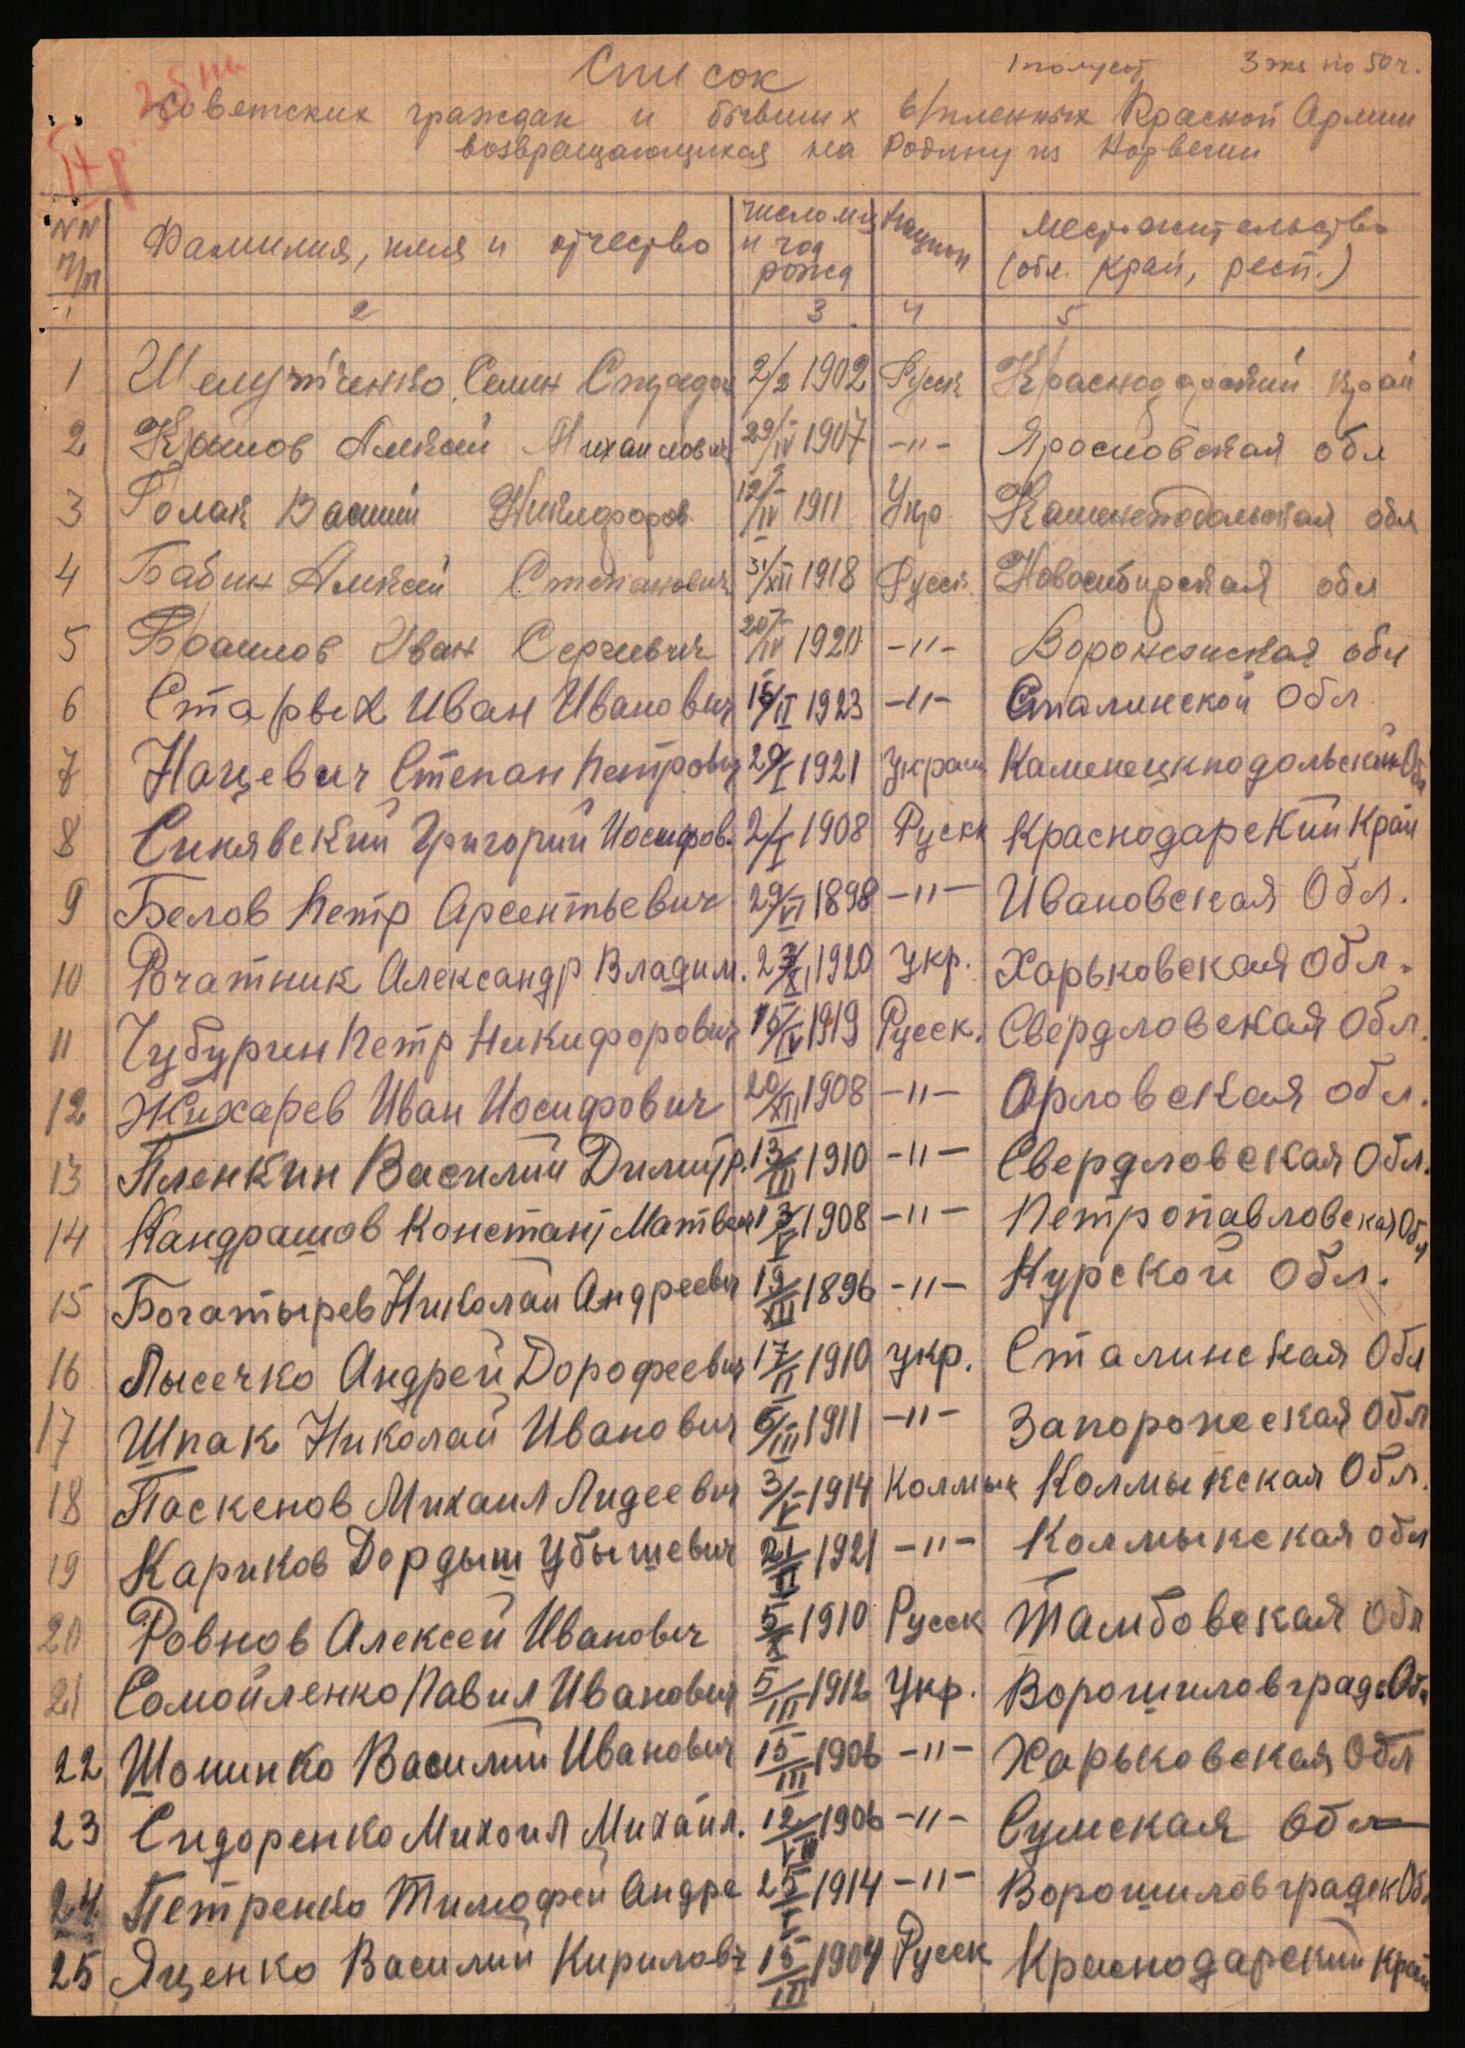 Список
3 экз по 50 г.
Советских граждан и бывших в/пленных Красной Армии
возвращающихся на Родину из Норвегии
NN п/п | Фамилия, имя и отчество | число м-ц и год рожд | Национ | мест-жительство (обл. край, респ.)
1 | 2 | 3 | 4 | 5
1 Шелутченко Семен 2/2 1902 Русск Краснодарский край
2 Крылов Алексей Михаилович 29/IV 1907 -"- Ярословская обл
3 Голак Василий Никифоров 12/IV 1911 Укр Каменетподольская обл
4 Бабин Алексей Степанович 31/XII 1918 Русск. Новосибирская обл
5 Браилов Иван Сергиевич 20/IV 1920 -"- Воронежская обл
6 Старых Иван Иванович 15/II 1923 -"- Сталинской Обл
7 Нацевич Степан Петрович 29/I 1921 Украин Каменецкподольской Обл
8 Синявский Григорий Иосифов. 2/I 1908 Руски Краснодарский Край
9 Белов Петр Арсентьевич 29/VI 1898 -"- Ивановская Обл.
10 Рочатник Александр Владим. 23/XI 1920 Укр. Харьковская Обл.
11 Чубурин Петр Никифорович 15/IV 1919 Русск. Свердловская Обл.
12 Жихарев Иван Иосифович 20/XII 1908 -"- Орловская обл.
13 Пленкин Василий Димитр. 13/III 1910 -"- Свердловская Обл.
14 Кандрашов Констант Матвеев 13/V 1908 -"- Петропавловская Обл
15 Богатырев Николай Андреевич 19/XII 1896 -"- Курской Обл.
16 Лысечко Андрей Дорофеевич 17/II 1910 укр. Сталинская Обл
17 Шпак Николай Иванович 6/III 1911 -"- Запорожская Обл
18 Паскенов Михаил Лидеевич 3/V 1914 Колмык Колмыкская Обл.
19 Кариков Дордыш Убышевич 21/II 1921 -"- Колмыкская обл
20 Ровнов Алексей Иванович 5/X 1910 Русск Тамбовская Обл
21 Сомойленко Павил Иванович 5/III 1912 Укр. Ворошиловградс Обл
22 Шонинко Василий Иванович 15/III 1906 -"- Харьковская Обл
23 Сидоренко Михоил Михаил. 12/VII 1906 -"- Сумская Обл
24 Петренко Тимофей Андре 25/V 1914 -"- Ворошиловградск Обл
25 Яценко Василий Кирилович 15/III 1904 Русск Краснодарский край